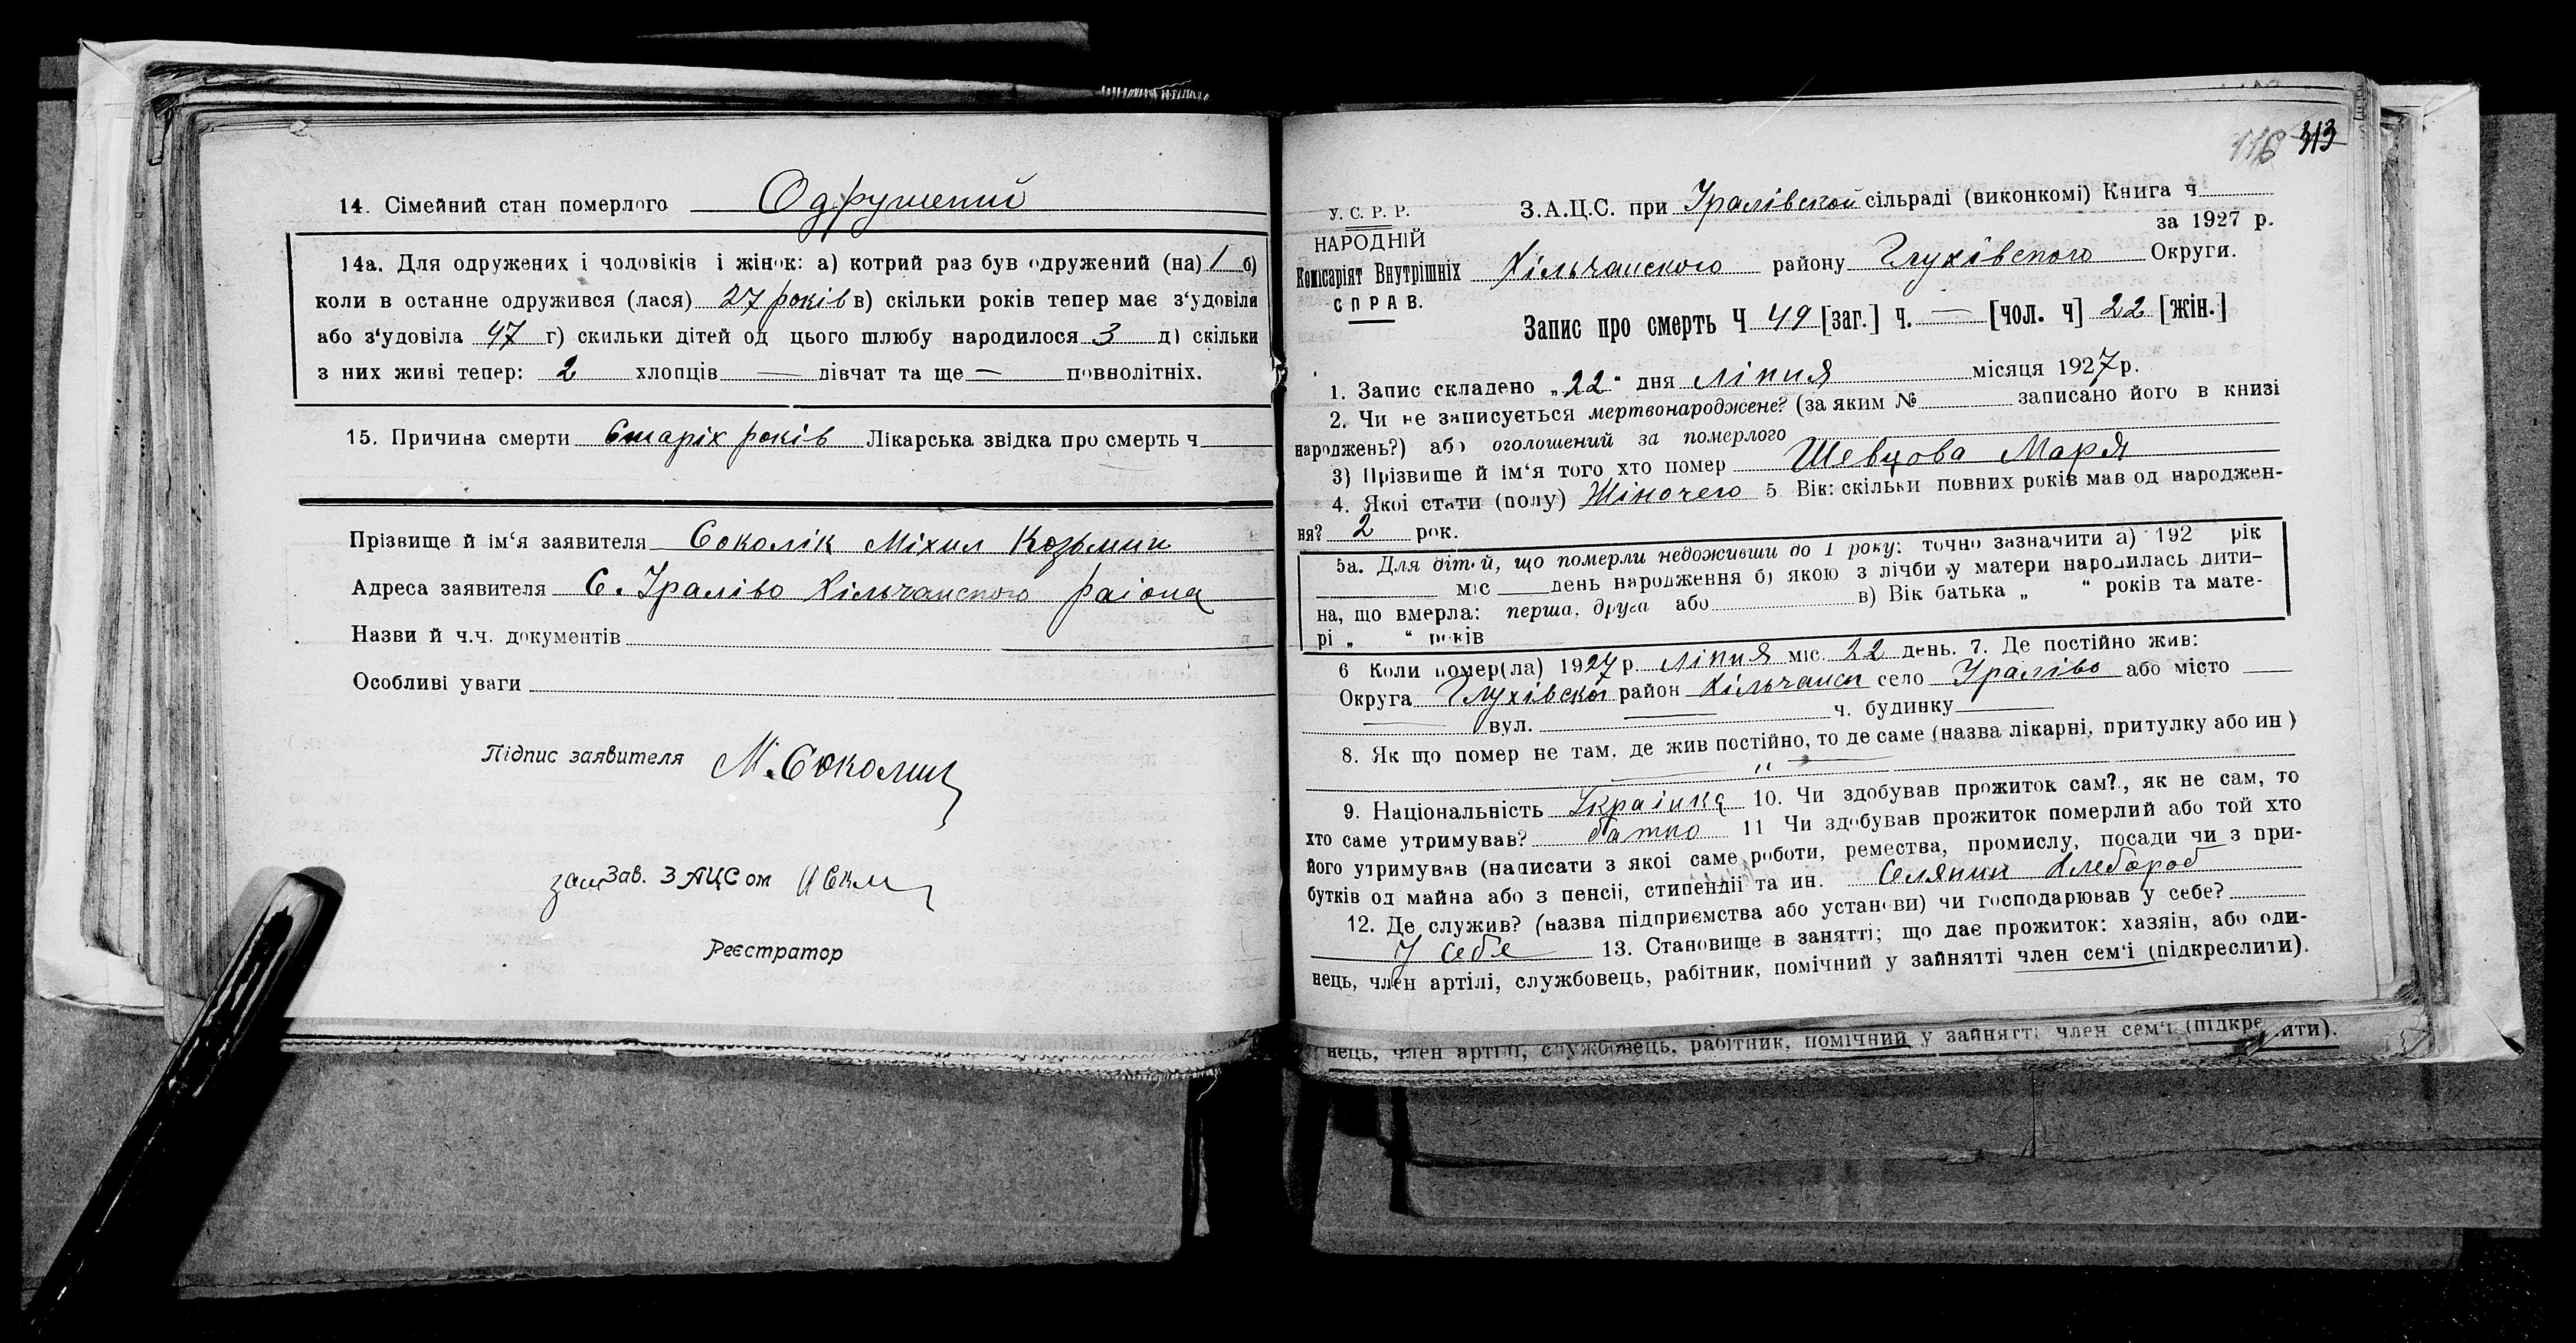 14. Сімейний стан померлого Одружений
14а. Для одружених і чоловіків і жінок: а) котрий раз був одружений (на) 1 б)
коли в останне одружився (лася) 27 років в) скільки років тепер має з‘удовіла
або з‘удовіла 47 г) скильки дітей од цього шлюбу народилося 3 д) скільки
з них живі тепер: 2 хлопців — дівчат та ще — повнолітніх.
15. Причина смерти Старіх років Лікарська звідка про смерть ч
Прізвище й ім‘я заявителя Соколік Міхил Козьмин
Адреса заявителя С. Іраліво Хільчанского раіона
Назви й ч.ч. документів
Особливі уваги
Підпис заявителя М. Соколик
зам Зав. ЗАЦСом
Реєстратор
116 313
У. С. Р. Р.
НАРОДНІЙ
Комісаріят Внутрішніх
СПРАВ.
З.А.Ц.С. при Іралівской сільраді (виконкомі) Книга ч
за 1927 р.
Хільчанского району Глухівского Округи.
Запис про смерть Ч 49 [заг.] ч. — [чол. ч] 22 [жін.]
1. Запис складено „22“ дня Ліпня місяця 1927 р.
2. Чи не записується мертвонароджене? (за яким № записано його в книзі
народжень?) або оголошений за померлого
3) Прізвище й ім‘я того хто помер Шевцова Марія
4. Якої стати (полу) Жіночего 5 Вік: скільки повних років мав од народжен-
ня? 2 рок.
5а. Для дітей, що померли недоживши до 1 року: точно зазначити а) 192 рік
міс день народження б) якою з лічби у матери народилась дити-
на, що вмерла: перша, друга або в) Вік батька „ “ років та мате-
рі „ “ років
6 Коли помер(ла) 1927 р. Ліпня міс. 22 день. 7. Де постійно жив:
Округа Глухівской район Хільчанск село Іраліво або місто —
вул. — ч. будинку
8. Як що помер не там, де жив постійно, то де саме (назва лікарні, притулку або ин)
9. Національність Украінка 10. Чи здобував прожиток сам?, як не сам, то
хто саме утримував? батко 11 Чи здобував прожиток померлий або той хто
його утримував (написати з якої саме роботи, ремества, промислу, посади чи з при-
бутків од майна або з пенсії, стипендії та ин. Селянин Хлебороб
12. Де служив? (назва підприємства або установи) чи господарював у себе?
У себе 13. Становище в занятті; що дає прожиток: хазяін, або оди-
нець, член артілі, службовець, рабітник, помічний у зайнятті член сем‘і (підкреслити).
нець, член артілі, службовець, рабітник, помічний у зайнятті член сем‘і (підкреслити).